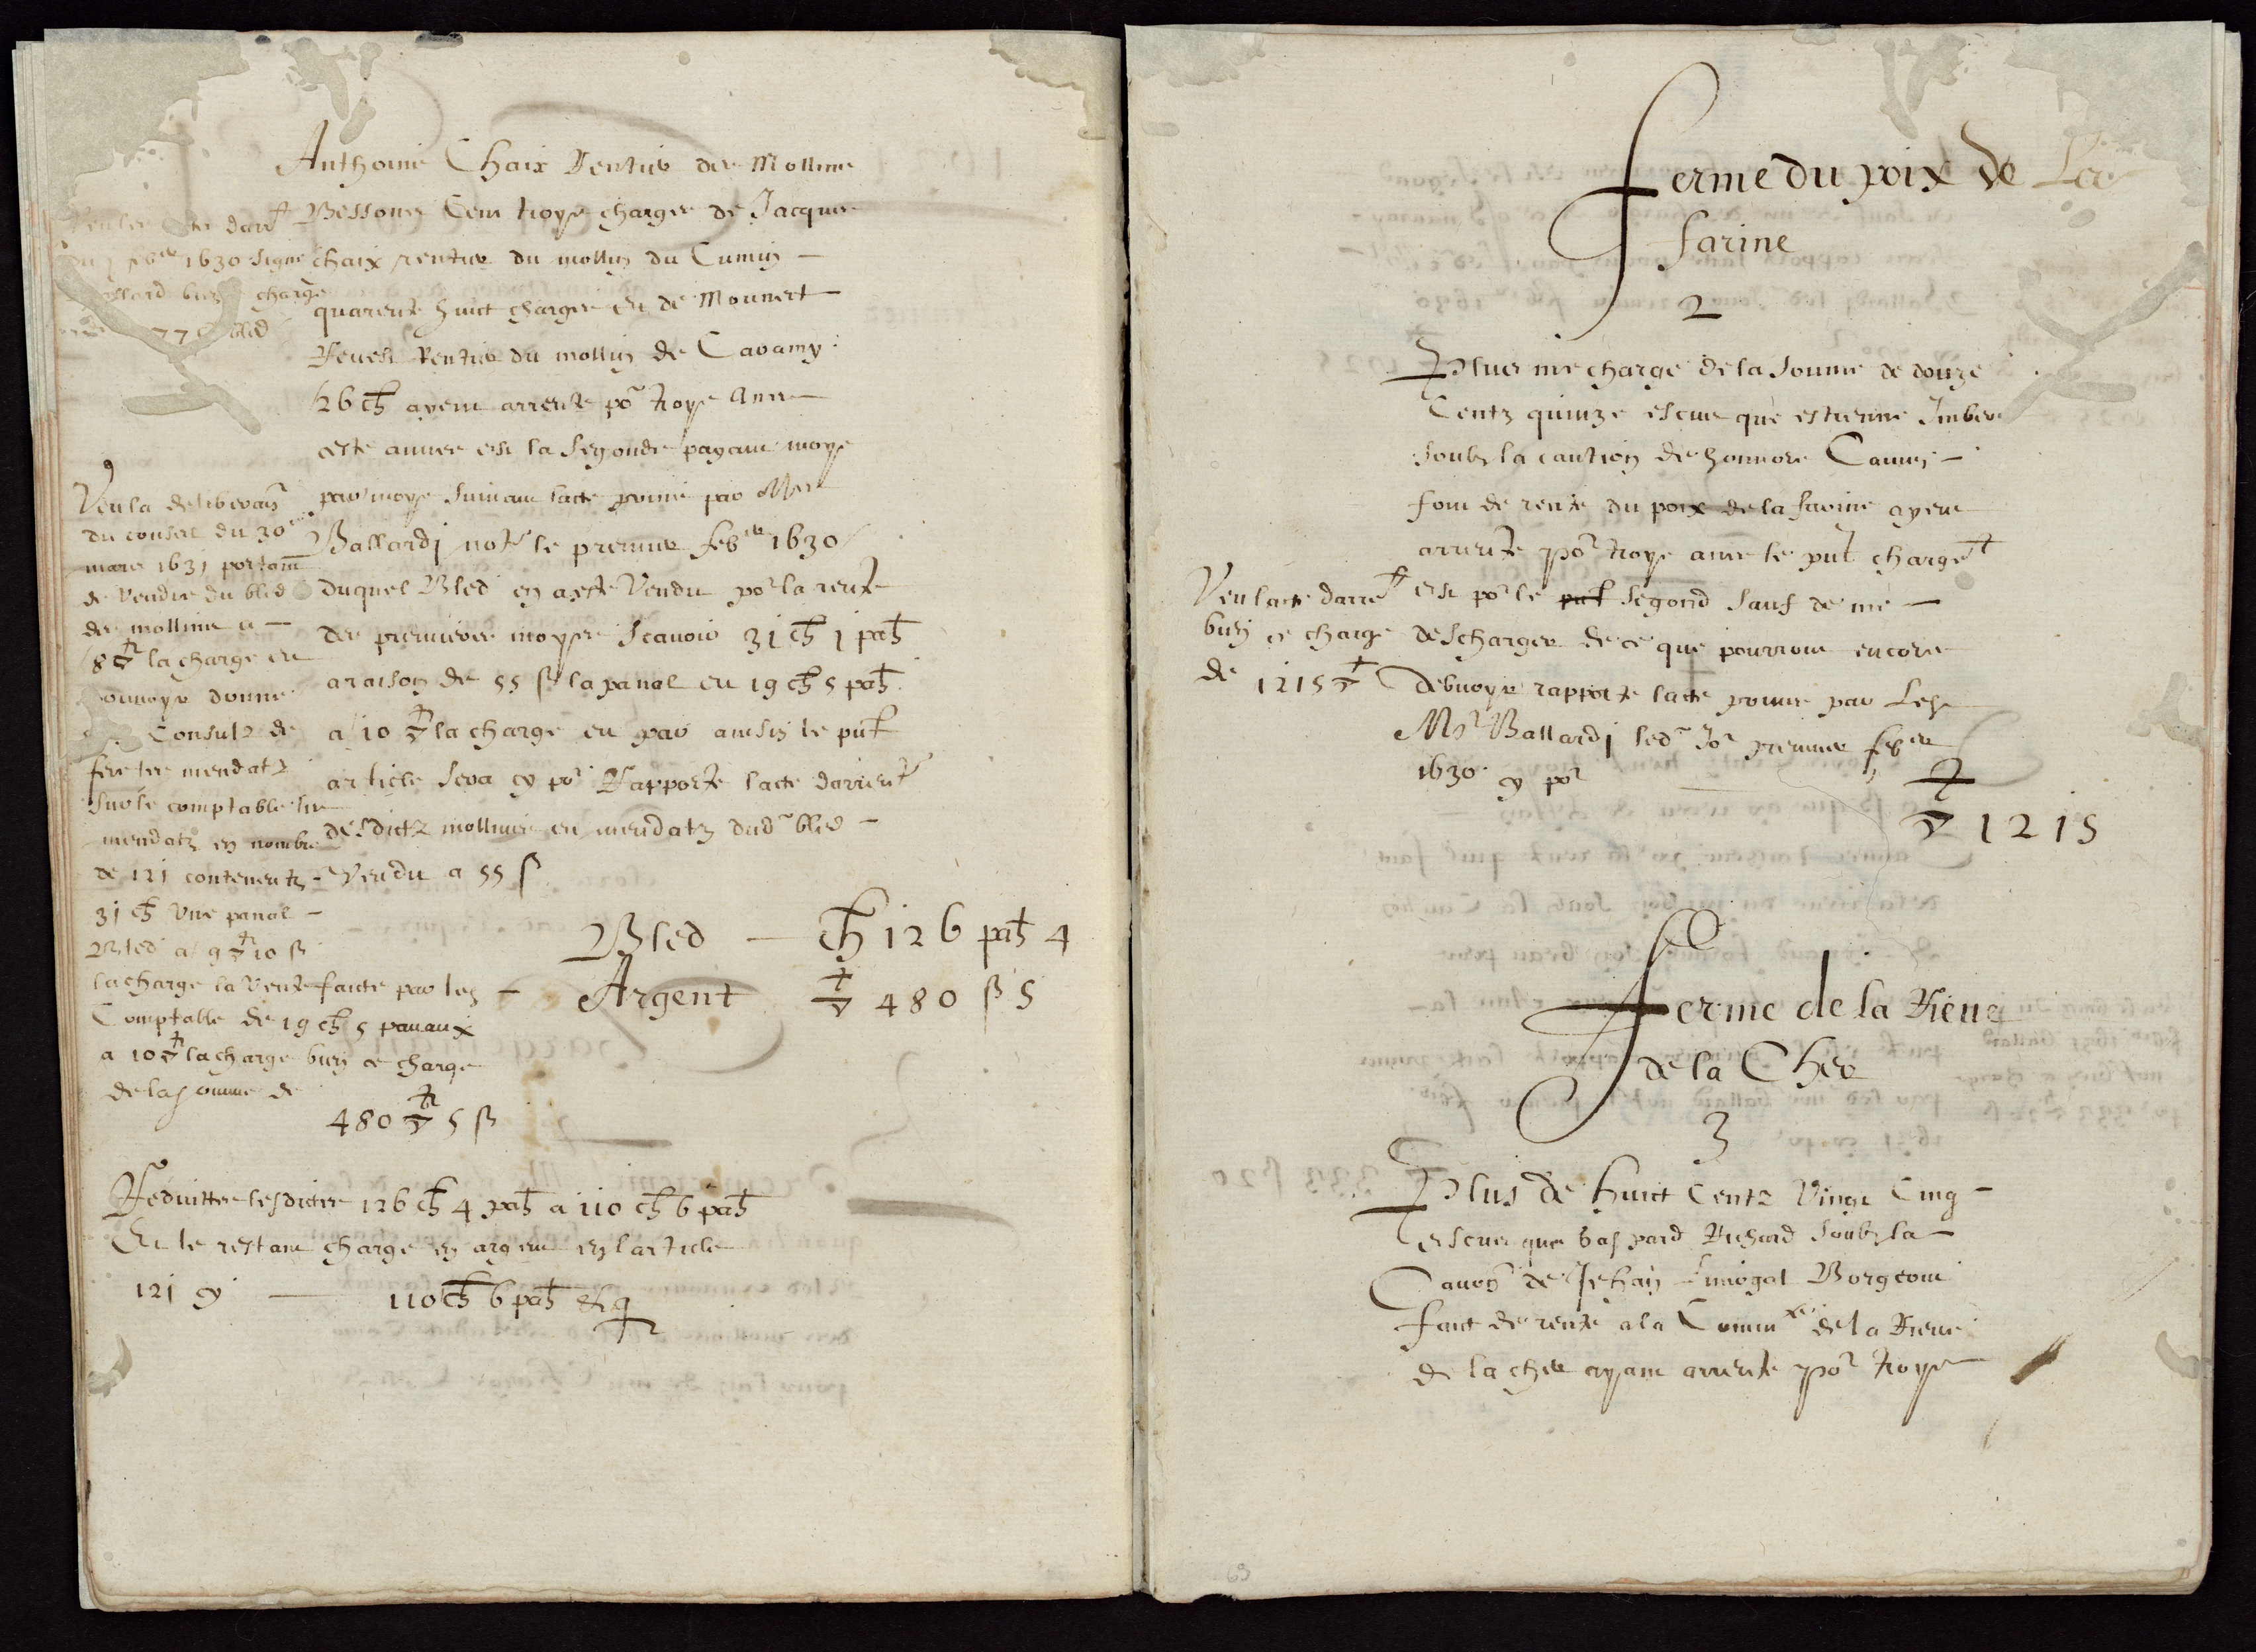 Anthoine Chaix Rentier des Mollins
Bessons Cent troys charges de Jacques
chaix rentier du mollin du Cumin
quarente huict charges et de Mounet
Reuest Rentier du mollin de Cavamy
26 ch ayent arrente por troys Annes
ceste annee est la segonde payant moys
par moys suivant lacte prinse par Mre
Ballardj notre le premier febier 1630
duquel Bled en a este Vendu por la rente
des premieres moyses Scavoir 31 ch 1 pal
a raison de 55 ß la panal et 19 ch 5 pal
a 10 la charge et par ainsin le pnt
article sera cy por Rapporte lacte darrentt
desdictz mollins et mendatz dud bled
Vendu a 55 ß
Bled ch 126 pal 4
Argent 480 ß 5
darrt
febier 1630 signe
charge
bled
Veu la deliberaon
du conseil du 30
mars 1631 portant
de Vendre du bled
des mollins a
8 la charge et
donne
Consulz de
mendatz
sur le comptable
mendatz en nombre
de 121 contenentz
31 ch Une panal
Bled a 9 10 ß
la charge la Vente faicte par les
Comptable de 19 ch 5 panaux
a 10 la charge bien ce charge
de la somme de
480 5 ß
Reduittes lesdictes 126 ch 4 pal a 110 ch 6 pal
Et le restant charge en argent en larticle
121 cy 110 ch 6 pal
ferme du poix de La
farine
2
Plus me charge de la somme de douze
Centz quinze escus que estienne Imber
soubz la caution de honnore Camin
font de rente du poix de la farine ayent
arrente por troys anne le pnt charget
est por le pnt segond sauf de me
descharger de ce que pourront encore
debvoyr rapporte lacte prinse par
Mr Ballardj led Jor premier febier
1630 cy por
1215
Veu lacte darret
bien ce charge
de 1215
ferme de la Rieue
de la Cher
3
Plus de huict Centz Vingt Cinq
escus que gaspard Richard soubz la
Cauon de Jehan Borgeon
faict de rente a la Commte de la Rieue
de la cher ayant arrente por troys
63